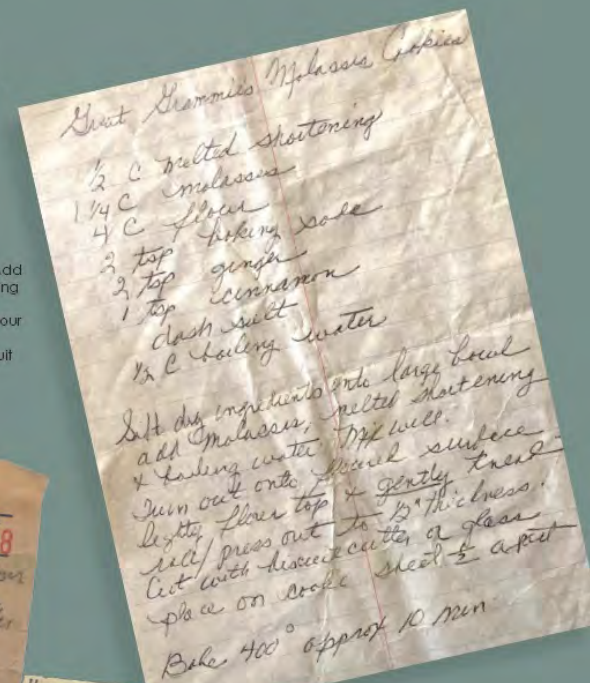 Great Grammie's Molassis Cookies
½ C melted shortening
1 ¼ C molasses
4 C flour
2 tsp baking soda
2 tsp ginger
1 tsp cinnamon
dash salt
½ C boiling water
Sift dry ingredients into large bowl
add molassis, melted shortening
& boiling water. Mix well.
Turn out onto floured surface
lightly flour top & gently knead
roll/press out to ½" thickness.
Cut with biscuit cutter or glass
place on cookie sheet ½ apart
Bake 400° approx 10 min
dd
ng
our
uit
8